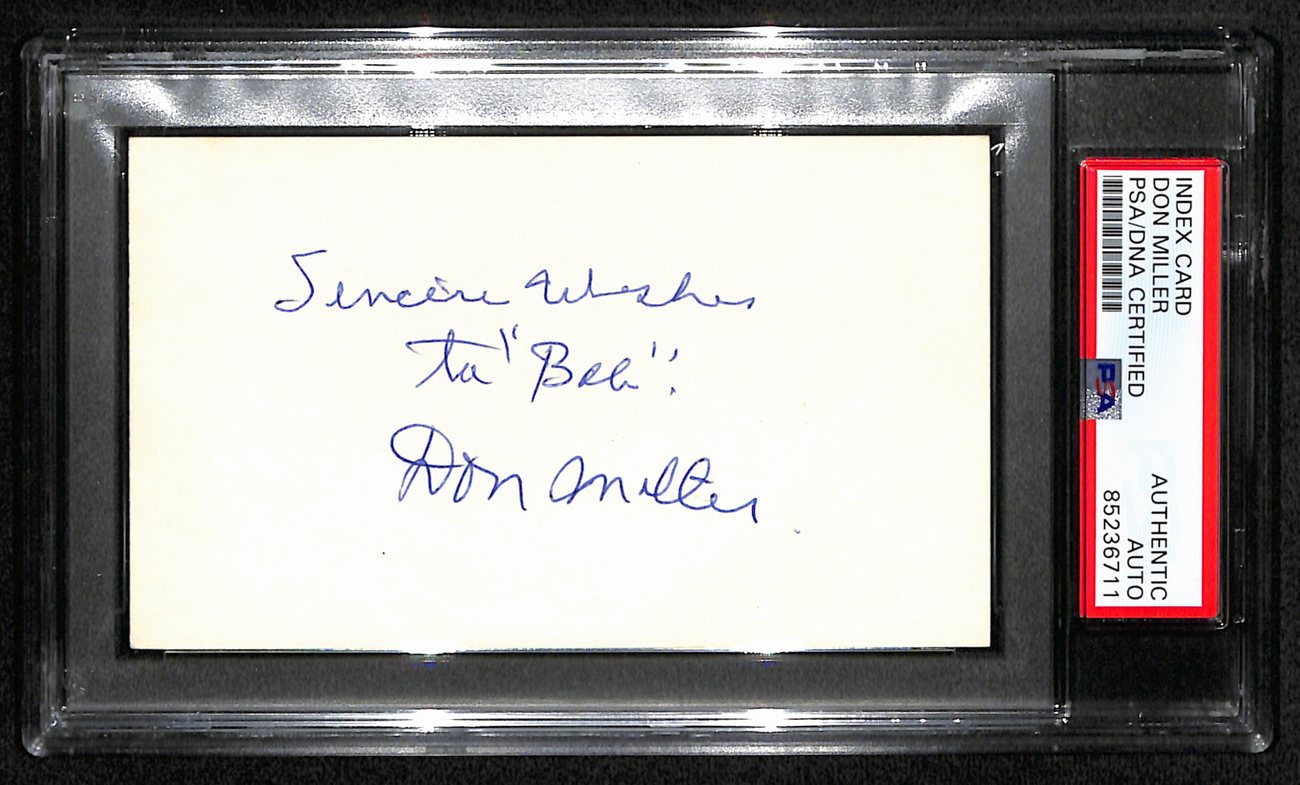 Sincere Wishes
to "Bob".
Don Miller
INDEX CARD
DON MILLER
PSA/DNA CERTIFIED
AUTHENTIC
AUTO
85236711
PSA